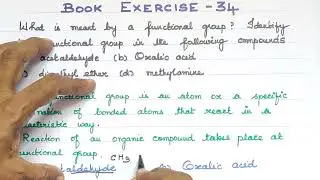 BOOK EXERCISE - 34
What is meant by a functional group? Identify
functional group in the following compounds
acetaldehyde (b) Oxalic acid
ether (d) methylamine
functional group is an atom or a specific
of bonded atoms that react in a
way.
Reaction of an organic compound takes place at
group.
CH3
(b) Oxalic acid